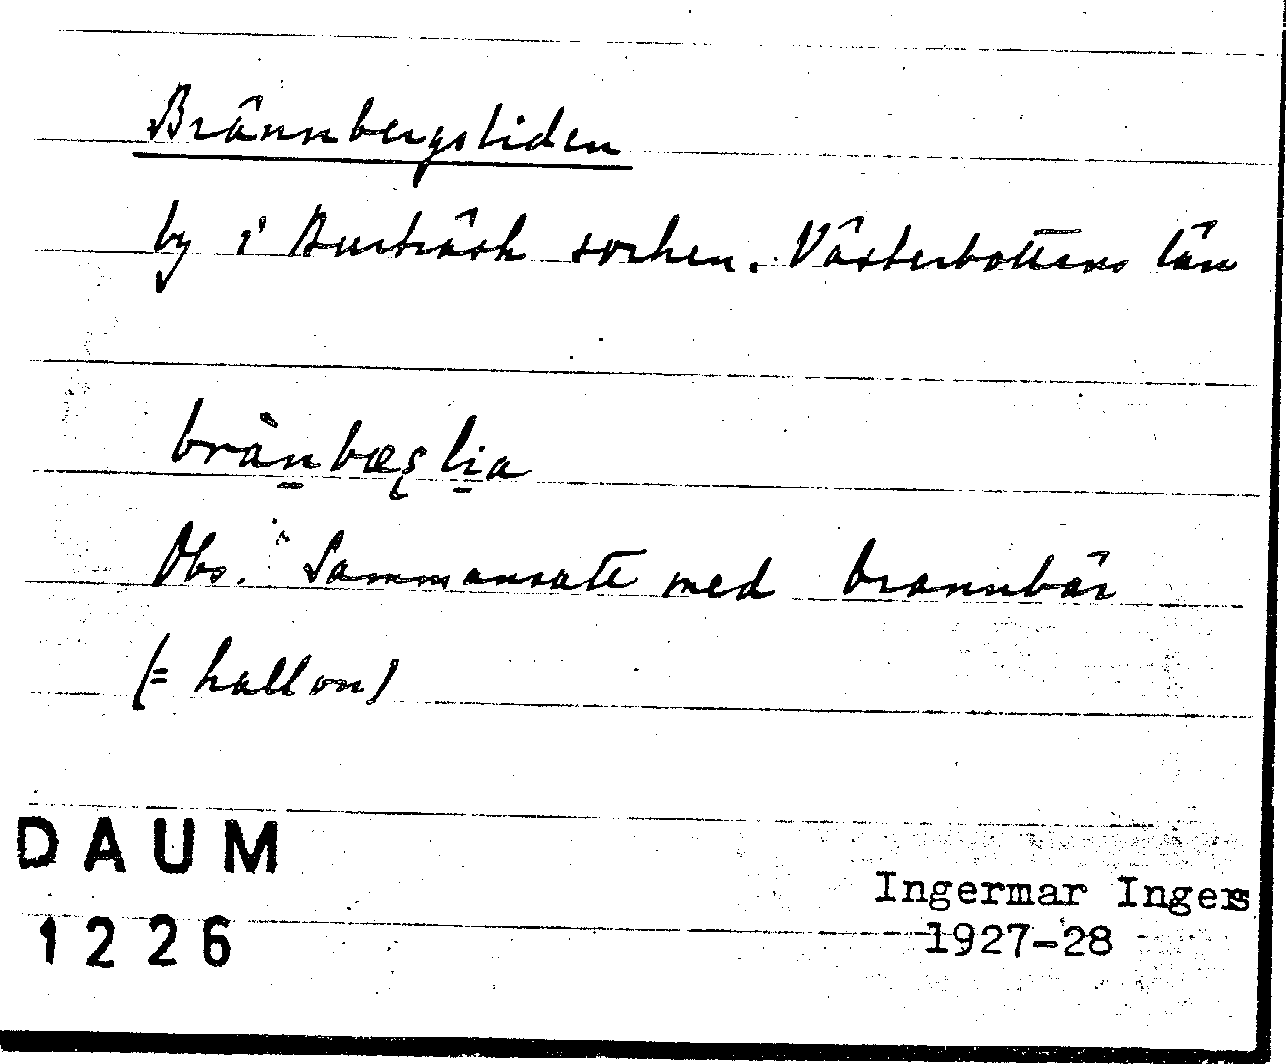 Brännbergsliden
by i Burträsk socken. Västerbottens län
brànbæșlia
Obs. Sammansatt med brannbär
(= hallon)
DAUM
1226
Ingermar Ingers
1927-28